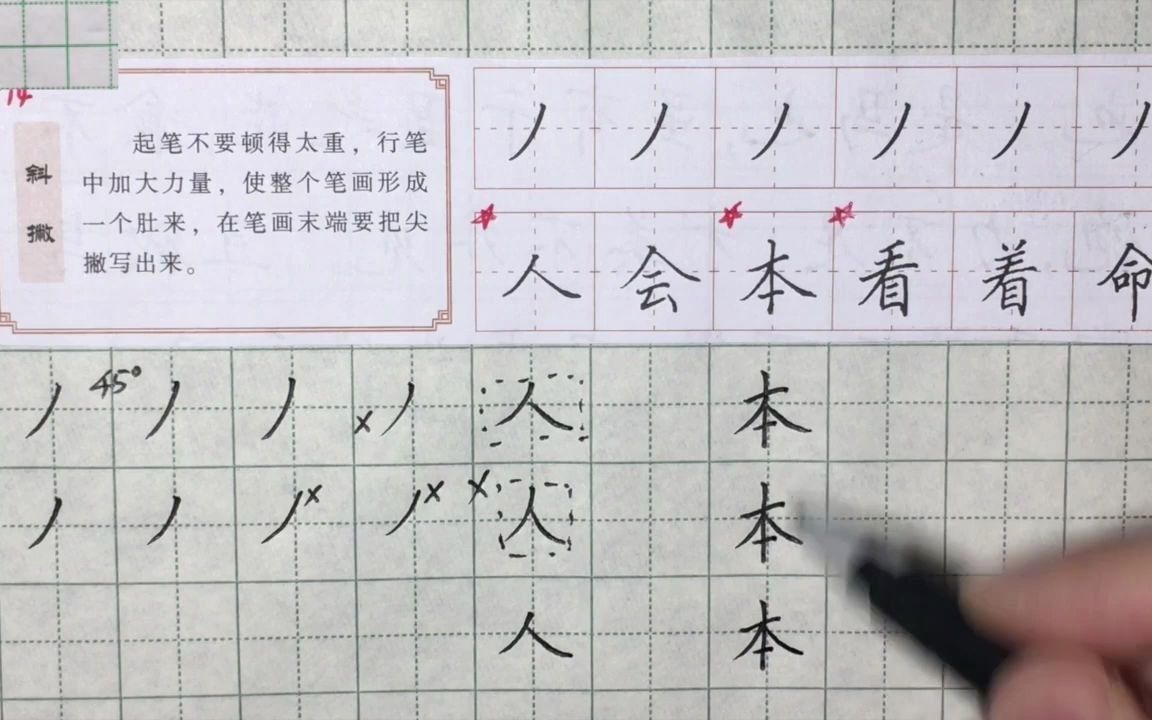 14
斜撇
起笔不要顿得太重，行笔
中加大力量，使整个笔画形成
一个肚来，在笔画末端要把尖
撇写出来。
丿 丿 丿 丿 丿 丿
人 会 本 看 着 命
丿 45° 丿 丿 × 丿 人 本
丿 丿 丿 × 丿 × × 人 本
人 本